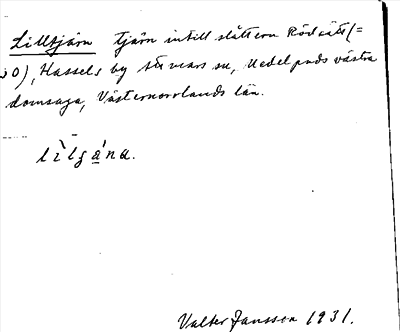 Lilltjärn tjärn intill slåttern Rödsätt (=
50), Hassels by Stu mars sn, Medelpads västra
domsaga, Västernorrlands län.
lìlgá̱na.
Valter Jansson 1931.